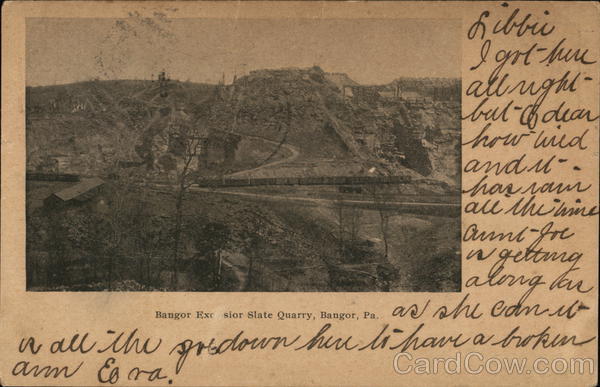 Libbie
I got here
all right
but O dear
how tired
and it
has rain
all the time
aunt Joe
is getting
along as
Bangor Excelsior Slate Quarry, Bangor, Pa.
as she can it
is all the go down here to have a broken
arm Eva.
CardCow.com